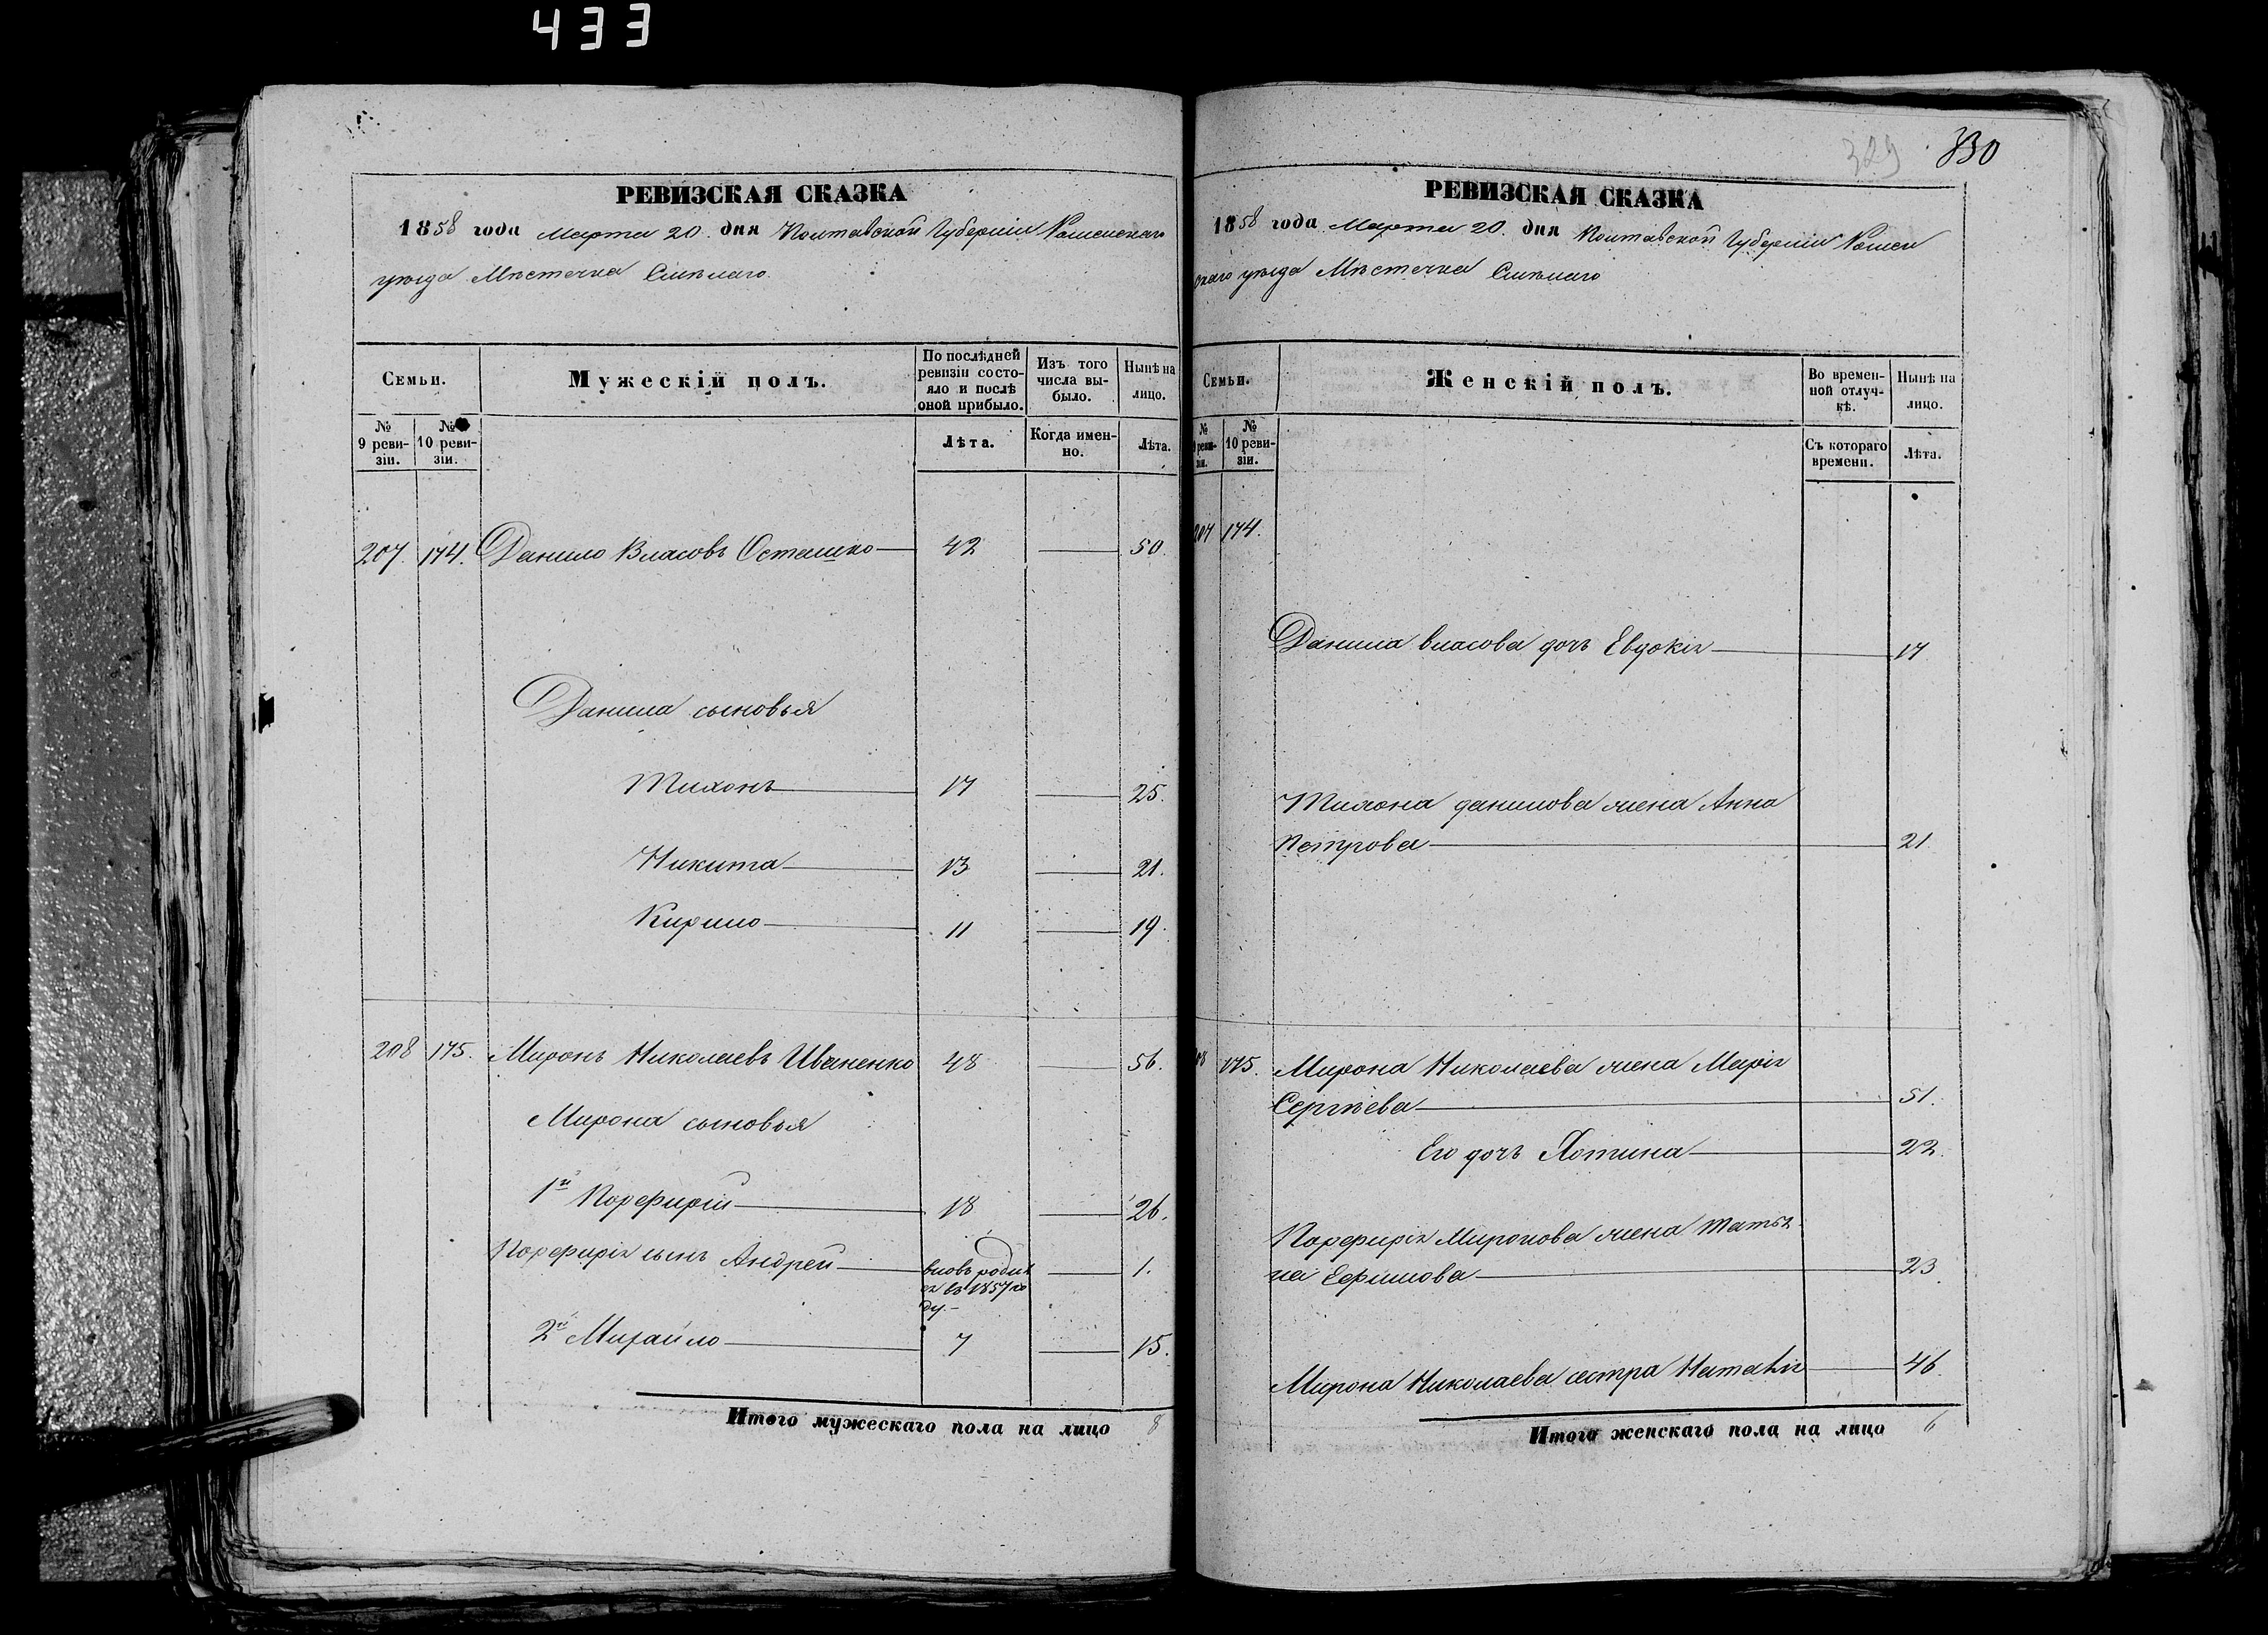 433
РЕВИЗСКАЯ СКАЗКА
1858 года Марта 20. дня Полтавской Губерніи Роменскаго
уѣзда Мѣстечка Смѣлаго.
Семьи.
Мужескій полъ.
По послѣдней ревизіи состояло и послѣ оной прибыло.
Изъ того числа выбыло.
Нынѣ на лицо.
№ 9 ревизіи.
№ 10 ревизіи.
Лѣта.
Когда именно.
Лѣта.
207. 174. Данило Власовъ Осташко 42 50.
Данила сыновья
Тихонъ 17 25.
Никита 13 21.
Кирило 11 19.
208 175. Миронъ Николаевъ Иваненко 48 56.
Мирона сыновья
1й Порефирій 18 26.
Порефирія сынъ Андрей вновь родил 1.
ся въ 1857 го
ду.
2й Михайло 7 15.
Итого мужескаго пола на лицо 8
329 330
РЕВИЗСКАЯ СКАЗКА
1858 года Марта 20. дня Полтавской Губерніи Ромен
скаго уѣзда Мѣстечка Смѣлаго
Семьи.
Женскій полъ.
Во временной отлучкѣ.
Нынѣ на лицо.
№ 9 ревизіи.
№ 10 ревизіи.
Съ котораго времени.
Лѣта.
207 174.
Данила власова дочь Евдокія 17
Тихона данилова жена Анна
Петрова 21
208 175. Мирона Николаева жена Марія
Сергѣева 51.
Его дочь Хотина 22.
Порефирія Миронова жена Татья
на Ефимова 23.
Мирона Николаева сестра Наталія 46.
Итого женскаго пола на лицо 6